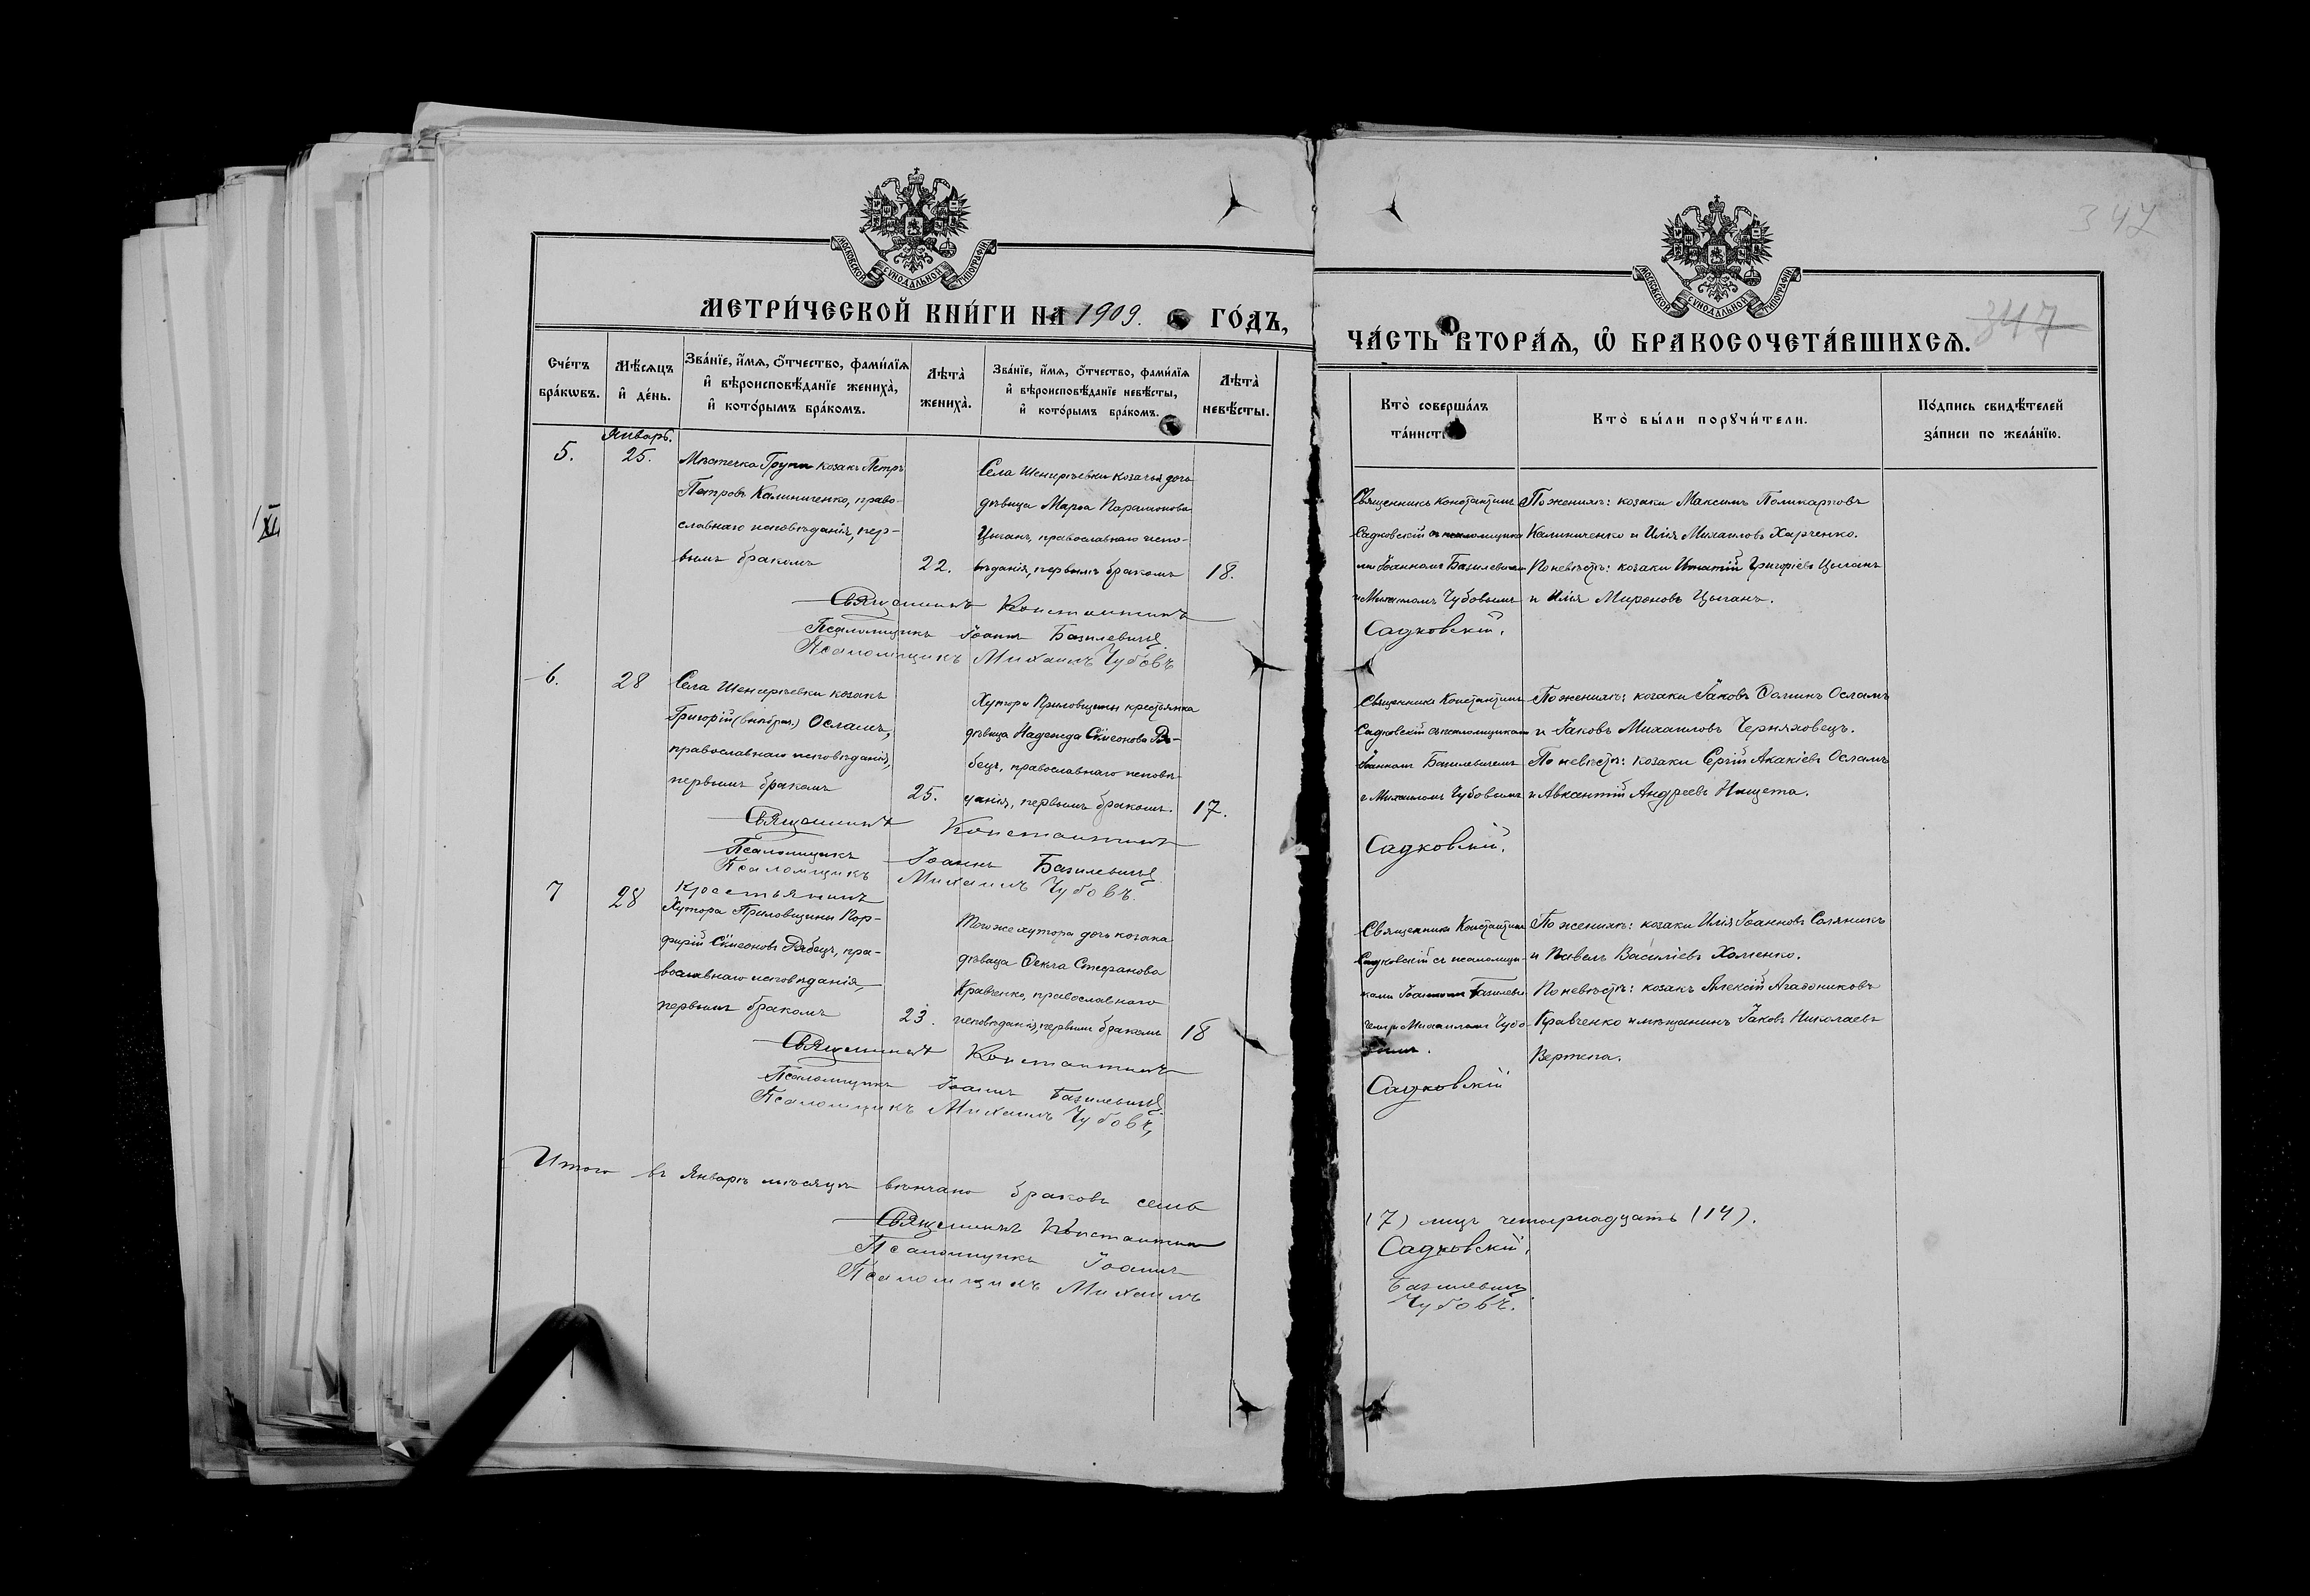 МОСКОВСКОЙ СУНОДАЛЬНОЙ ТИПОГРАФІИ
МЕТРИ́ЧЕСКОЙ КНИ́ГИ НА 1909. ГО́ДЪ,
Сче́тъ бра́кѡвъ.
Мѣ́сяцъ и҆ де́нь.
Зва́нїе, и҆́мѧ, ѻ҆́тчество, фами́лїѧ
и҆ вѣроисповѣ́данїе жениха̀,
и҆ кото́рымъ бра́комъ.
Лѣта̀ жениха̀.
Зва́нїе, и҆́мѧ, ѻ҆́тчество, фами́лїѧ
и҆ вѣроисповѣ́данїе невѣ́сты,
и҆ кото́рымъ бра́комъ.
Лѣта̀ невѣ́сты.
Январь.
5.
25.
Мѣстечка Груни козакъ Петръ
Петровъ Калиниченко, право-
славнаго исповѣданія, пер-
вымъ бракомъ
22.
Села козачья дочь
дѣвица Марѳа Парамонова
Цыганъ, православнаго испо-
вѣданія, первымъ бракомъ
18.
Священникъ Константинъ
Псаломщикъ Іоаннъ Базилевичъ
Псаломщикъ Михаилъ Чубовъ
6.
28
Села козакъ
Григорій Осламъ,
православнаго исповѣданія,
первымъ бракомъ
25.
Хутора Приловщины крестьянка
дѣвица Надежда Сѵмеонова Ря-
бецъ, православнаго исповѣ-
данія, первымъ бракомъ.
17.
Священникъ Константинъ
Псаломщикъ Іоаннъ Базилевичъ
Псаломщикъ Михаилъ Чубовъ.
7
28
Крестьянинъ
Хутора Приловщины Пор-
фирій Сѵмеоновъ Рябецъ, пра-
вославнаго исповѣданія,
первымъ бракомъ
23.
Того же хутора дочь козака
дѣвица Ѳекла Стефанова
Кравченко, православнаго
исповѣданія, первымъ бракомъ
18
Священникъ Константинъ
Псаломщикъ Іоаннъ Базилевичъ
Псаломщикъ Михаилъ Чубовъ,
Итого въ Январѣ мѣсяцѣ вѣнчано браковъ семь
Священникъ Константинъ
Псаломщикъ Іоаннъ
Псаломщикъ Михаилъ
347
МОСКОВСКОЙ СУНОДАЛЬНОЙ ТИПОГРАФІИ
347
ЧА́СТЬ ВТОРА́Ѧ, Ѡ҆ БРАКОСОЧЕТА́ВШИХСѦ.
Кто̀ соверша́лъ
та́инст
Кто̀ бы́ли порꙋчи́тели.
По́дпись свидѣ́телей
за́писи по жела́нїю.
Священникъ Константинъ
Садковскій съ псаломщика
ми Іоанномъ Базилевичемъ
и Михаиломъ Чубовымъ
Садковскій.
По женихѣ: козаки Максимъ Поликарповъ
Калиниченко и Илія Михаиловъ Харченко.
По невѣстѣ: козаки Игнатій Григоріевъ Цыганъ
и Илія Мироновъ Цыганъ.
Священникъ Константинъ
Садковскій съ псаломщиками
Іоанномъ Базилевичемъ
и Михаиломъ Чубовымъ
Садковскій.
По женихѣ: козаки Іаковъ Ѳоминъ Осламъ
и Іаковъ Михаиловъ Черняховецъ.
По невѣстѣ: козаки Сергій Акакіевъ Осламъ
и Авксентій Андреевъ Нищета.
Священникъ Константинъ
Садковскій съ псаломщи-
ками Іоанномъ Базилеви-
чемъ и Михаиломъ Чубо-
вымъ.
Садковскій
По женихѣ: козаки Илія Іоанновъ Саляникъ
и Павелъ Василіевъ Хоменко.
По невѣстѣ: козакъ Алексій Агаѳониковъ
Кравченко и мѣщанинъ Іаковъ Николаевъ
Вертепа.
(7) лицъ четырнадцать (14).
Садковскій,
Базилевичъ
Чубовъ.